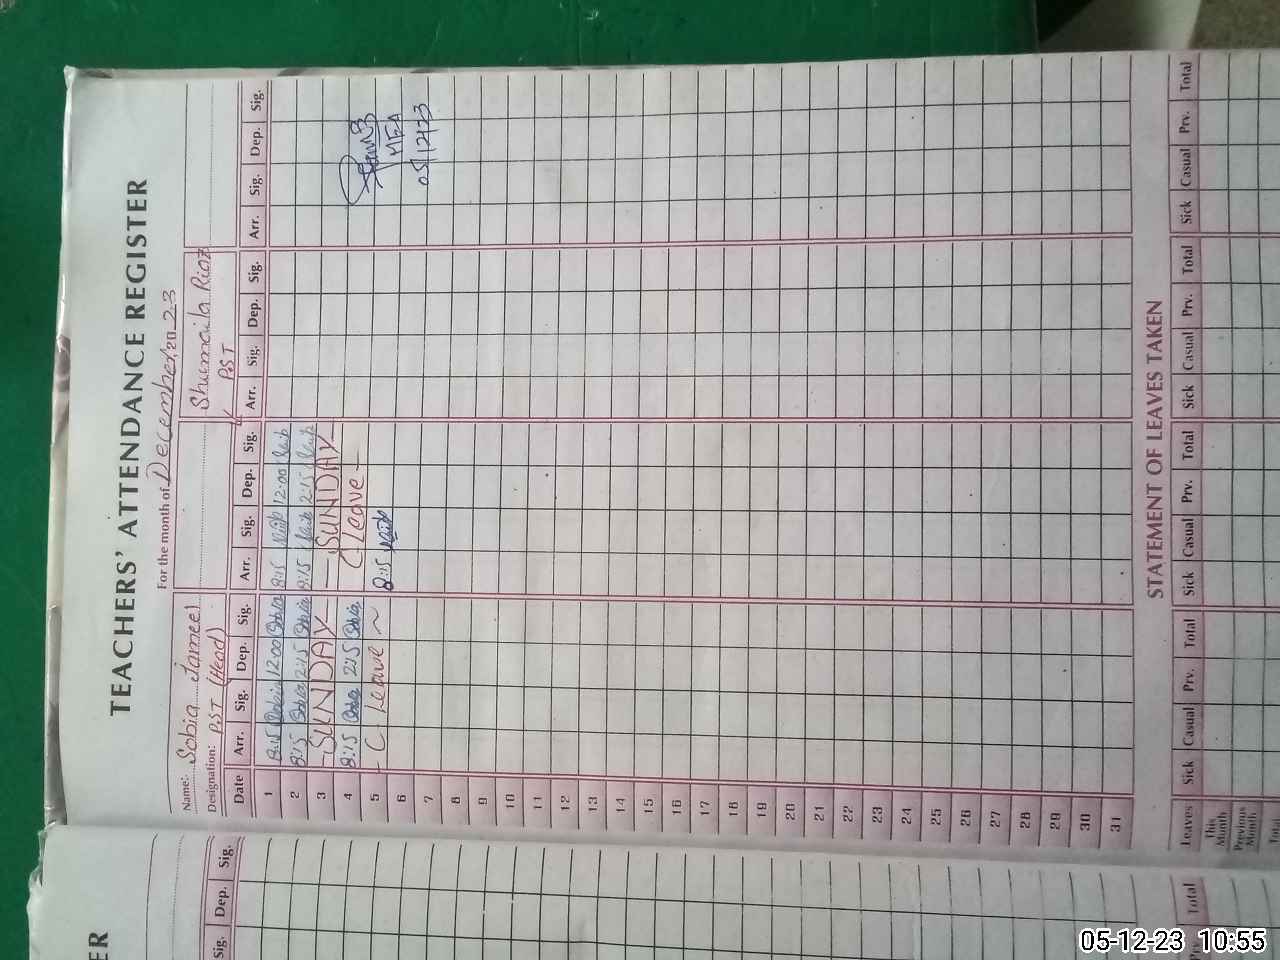 TEACHERS' ATTENDANCE REGISTER
For the month of December, 20 23
Name: Sobia Jameel
Shumaila Riaz
Designation: PST (Head)
PST
Date Arr. Sig. Dep. Sig. Arr. Sig. Dep. Sig. Arr. Sig. Dep. Sig. Arr. Sig. Dep. Sig.
1 8:15 Sobia 12:00 Sobia 8:15 12:00
2 8:15 Sobia 2:15 Sobia 8:15 2:15
3 - SUNDAY - - SUNDAY -
4 8:15 Sobia 2:15 Sobia C leave -
5 - C leave ~ 8:15
6
7
8
9
10
11
12
13
14
15
16
17
18
19
20
21
22
23
24
25
26
27
28
29
30
31
MEA
05/12/23
STATEMENT OF LEAVES TAKEN
Leaves Sick Casual Prv. Total Sick Casual Prv. Total Sick Casual Prv. Total Sick Casual Prv. Total
This Month
Previous Month
Total
ER
Sig. Dep. Sig.
Prv. Total
05-12-23 10:55